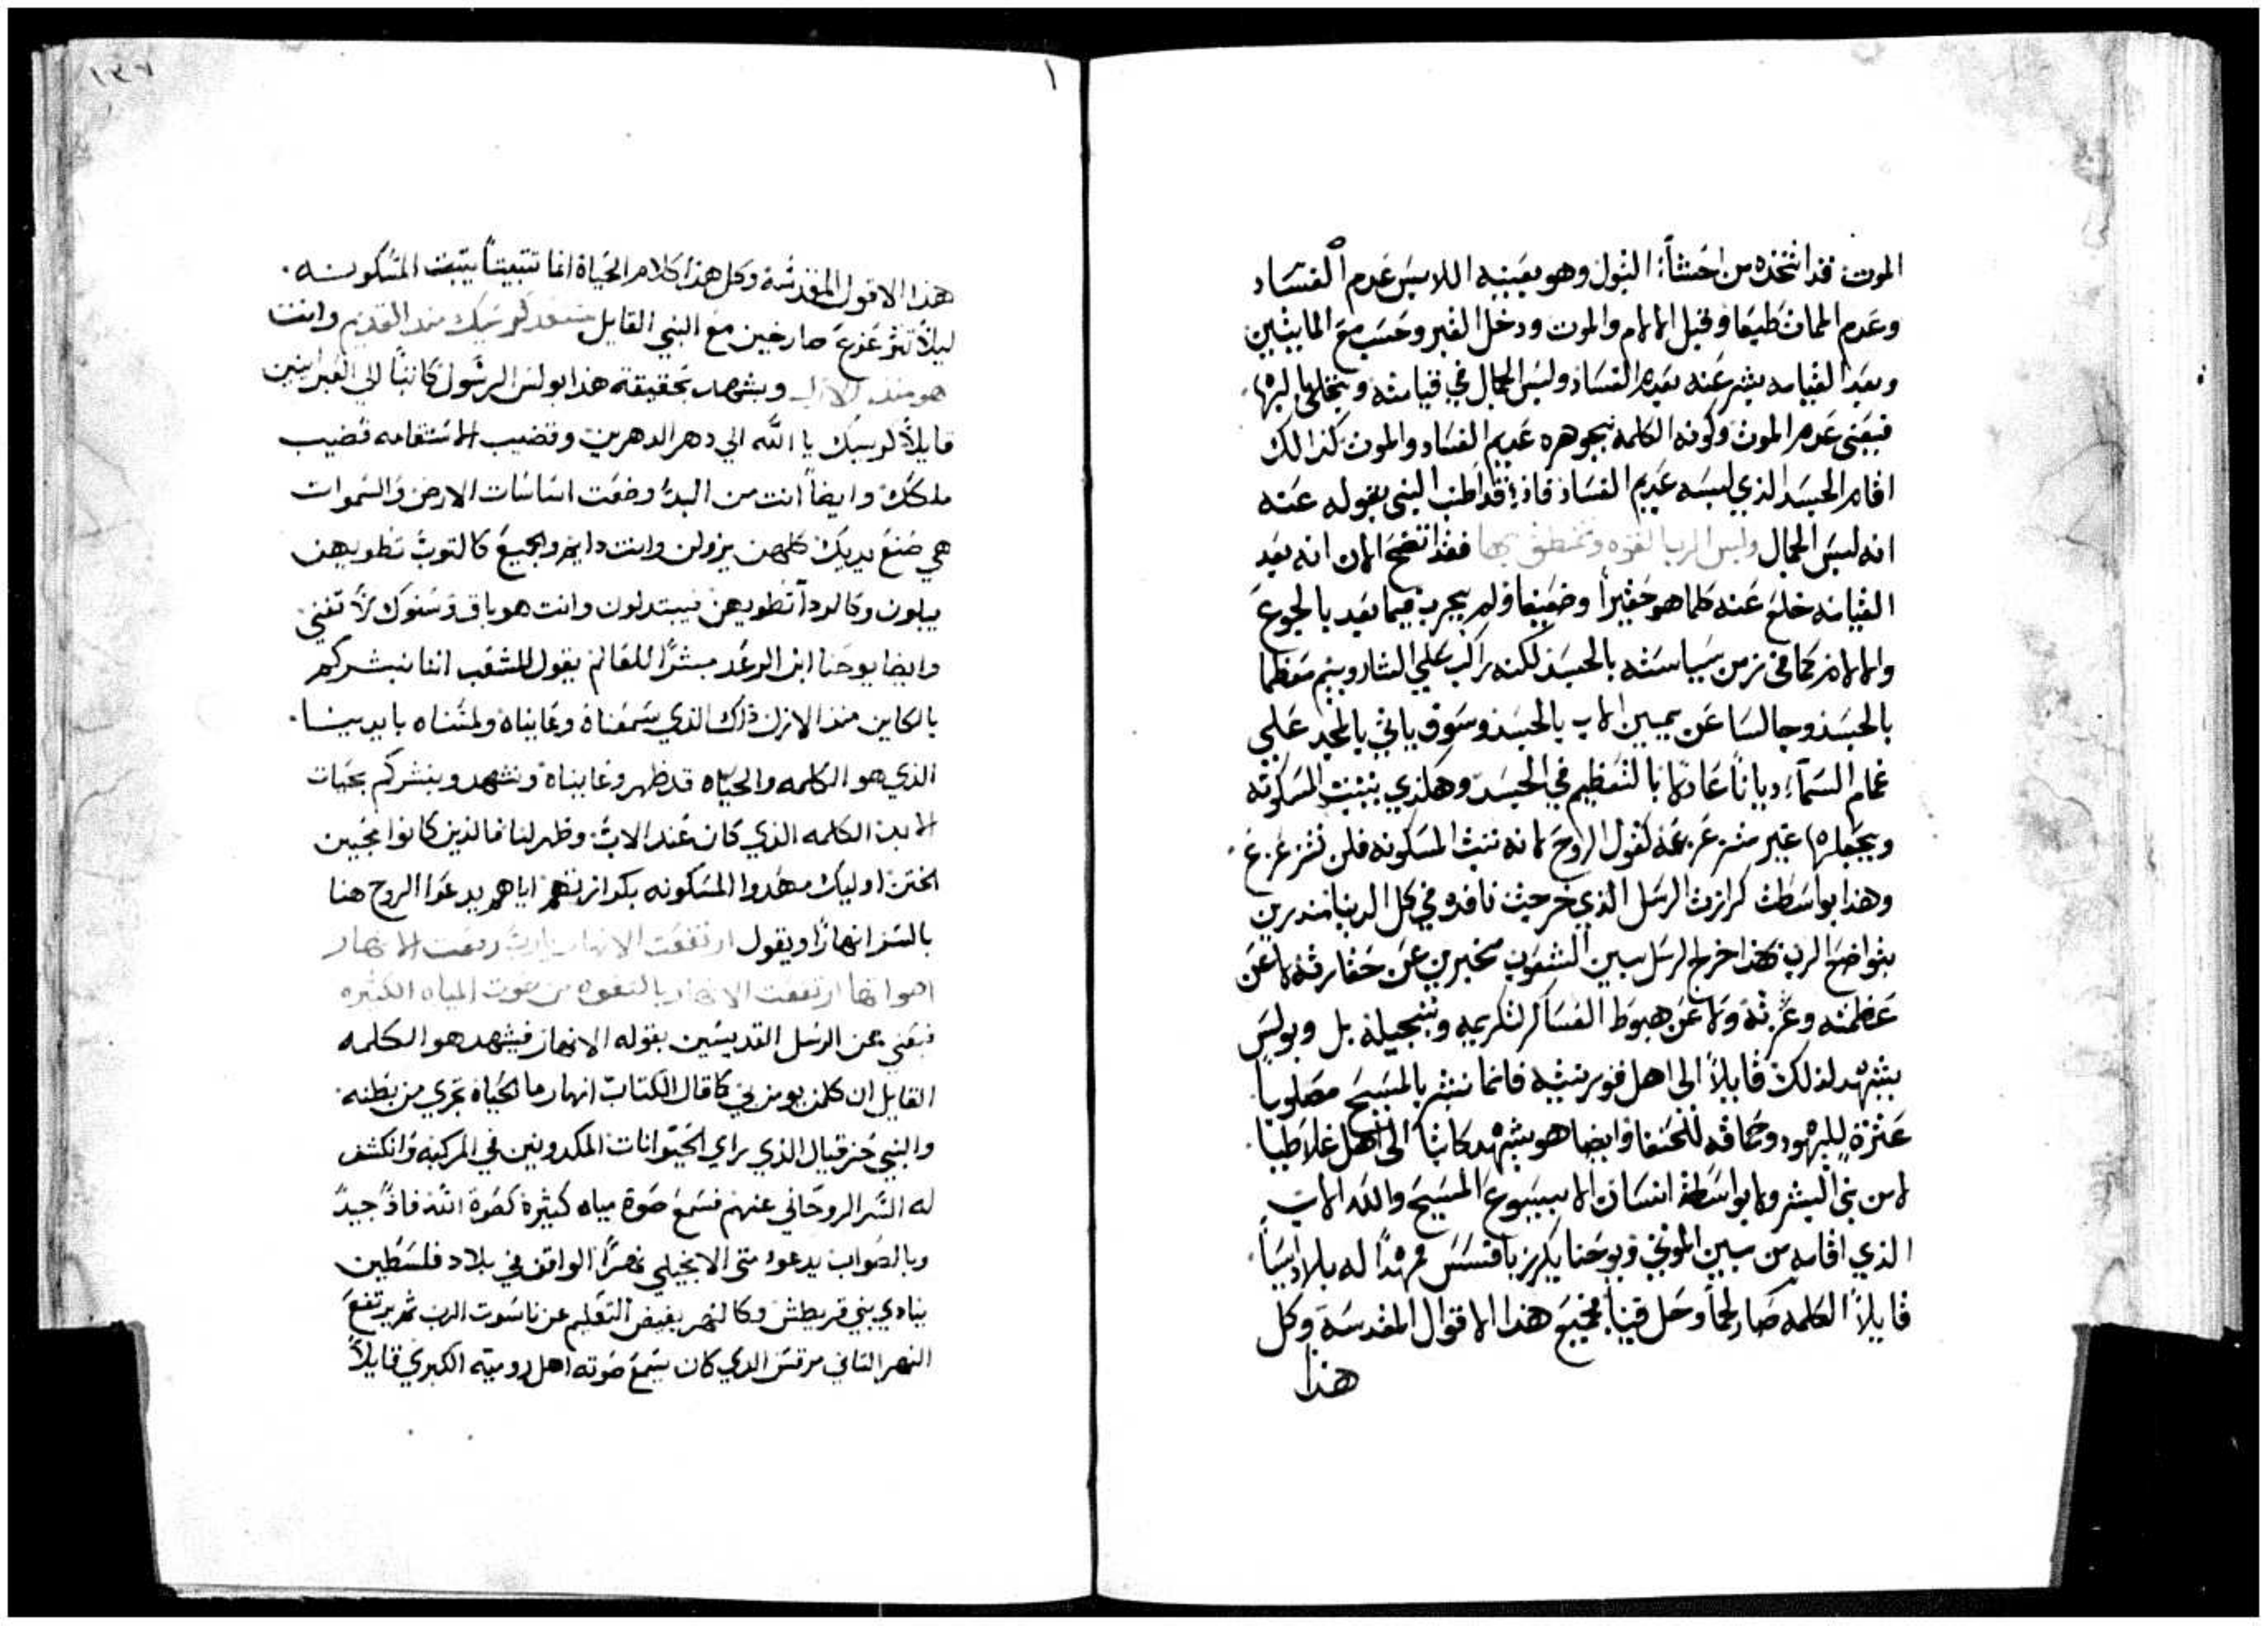 الموت قد اتخذه من احشا البتول وهو بعينه اللابس عدم الفساد
وعدم الممات طبيعا وقبل الالام والموت ودخل القبر وحسب مع المايتين
وبعد القيامه بشر عنه بعدم الفساد ولبس الجمال في قيامته
فيعني عدم الموت وكونه الكلمه بجوهره عديم الفساد والموت كذالك
اقام الجسد الذي لبسه عديم الفساد فاذ قد اطنب النبي بقوله عنه
انه لبس الجمال ولبس الرب القوه وتمنطق بها فقد اتضح الان انه بعد
القيامه خلع عنه كلما هو حقيرا وضعيفا ولم يجرب فيما بعد بالجوع
والالام كما في زمن سياسته بالجسد لكنه راكب علي الشاروبيم معظما
بالجسد وجالسا عن يمين الاب بالجسد وسوف ياتي بالمجد علي
غمام السماء ديانا عادلا بالتعظيم في الجسد وهكذي يثبت المسكونه
ويجعلها غير متزعزعه كقول الروح لانه ثبت المسكونه فلن تتزعزع
وهذا بواسطت كرازت الرسل الذي خرجت نافده في كل الدنيا منذرين
بتواضع الرب لهذا خرج الرسل بين الشعوب مخبرين عن حقارته لا عن
عظمته وعزته ولا عن هبوط العساكر لتكريمه وتبجيله بل وبولس
يشهد لذلك قايلا الى اهل قورنثيه فانما نبشر بالمسيح مصلوبا
عثرة لليهود وحماقه للحنفا وايضا هو يشهد كاتبا الى اهل غلاطيا
لا من بني البشر ولا بواسطة انسان الا بيسوع المسيح والله الاب
الذي اقامه من بين الموتى ويوحنا يكرز بافسس ممهدا له بلاد اسيا
قايلا الكلمه صار لحما وحل فينا فجميع هذا الاقوال المقدسة وكل
هذا
١٣٧
١
هذا الاقول المقدسه وكل هذا كلام الحياة انما تثبيتا يثبت المسكونه
ليلا تتزعزع صارخين مع النبي القايل مستعد كرسيك منذ القديم وانت
هو منذ الازل ويشهد بحقيقة هذا بولس الرسول كاتبا الي العبرانيين
قايلا كرسيك يا الله الي دهر الدهرين وقضيب الاستقامه قضيب
ملكك وايضا انت من البدء وضعت اساسات الارض والسموات
هي صنع يديك كلهن يزولن وانت دايم والجميع كالثوب تطويهن
يبلون وكالردا تطويهن فيبتدلون وانت هو باق وسنوك لا تفني
وايضا يوحنا ابن الرعد مبشرا للعالم يقول للشعب اننا نبشركم
بالكاين منذ الازل ذلك الذي سمعناه وعايناه ولمسناه بايدينا
الذي هو الكلمه والحياه قد ظهر وعايناه ونشهد ونبشركم بحيات
الابد الكلمه الذي كان عند الاب وظهر لنا فالذين كانوا محبين
الختن اوليك مهدوا المسكونه بكرازتهم اياهم يدعوا الروح هنا
بالسر انهارا ويقول ارتفعت الانهار يارب رفعت الانهار
اصواتها ارتفعت الانهار بالتعوه من صوت المياه الكثيره
فيعني عن الرسل القديسين بقوله الانهار فيشهد هو الكلمه
القايل ان كلمن يومن بي كما قال الكتاب انهار ما الحياه تجري من بطنه
والنبي حزقيال الذي راي الحيوانات المكدونين في المركبه وانكشف
له السر الروحاني عنهم فسمع صوة مياه كثيرة كصوة الله فاذ جيد
وبالصواب يدعو متى الانجيلي نهرا الواقف في بلاد فلسطين
ينادي بني قريطش وكالنهر يفيض التعليم عن ناسوت الرب ثم يرتفع
النهر الثاني مرقس الدي كان يسمع صوته اهل روميه الكبري قايلا